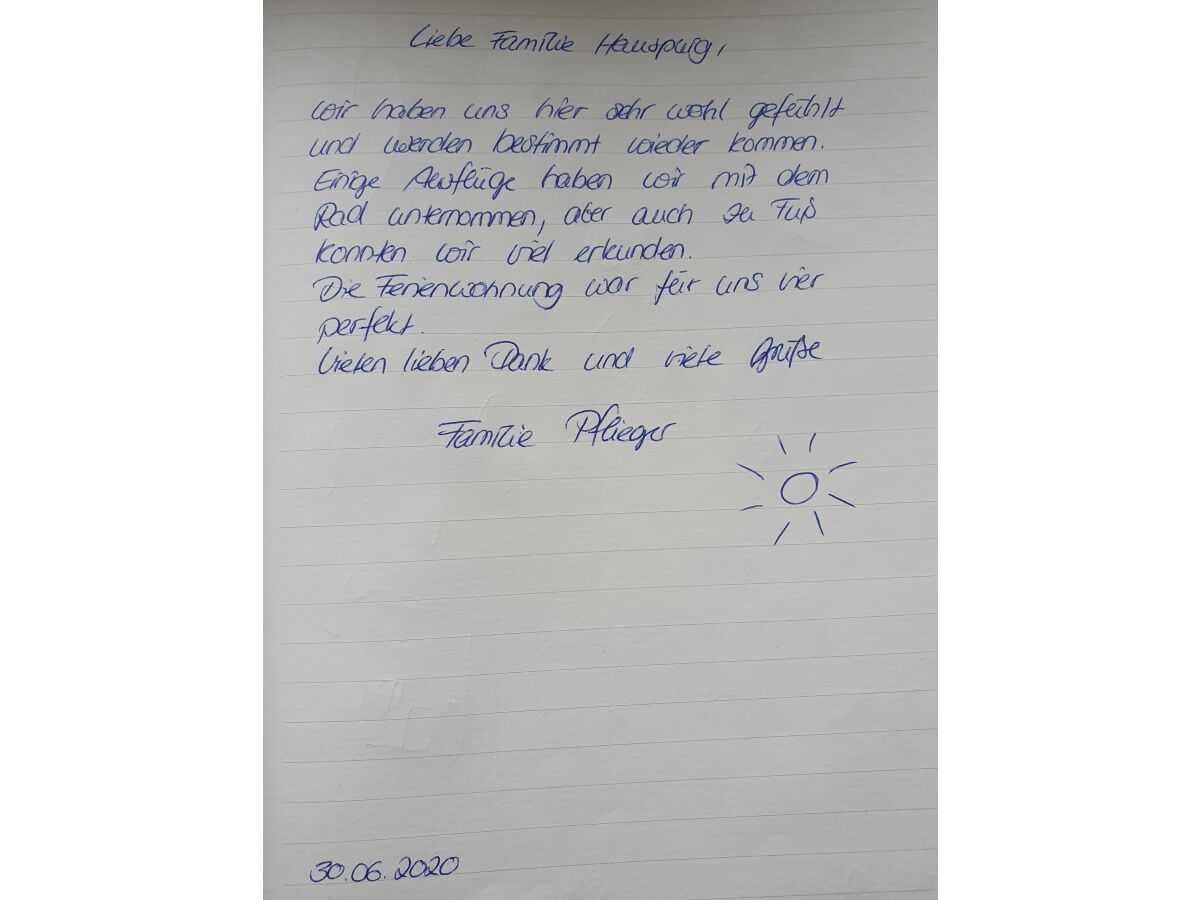 Liebe Familie Hauspurg,
wir haben uns hier sehr wohl gefühlt
und werden bestimmt wieder kommen.
Einige Ausflüge haben wir mit dem
Rad unternommen, aber auch zu Fuß
konnten wir viel erkunden.
Die Ferienwohnung war für uns vier
perfekt.
Vielen lieben Dank und viele Grüße
Familie Pflieger
30.06.2020